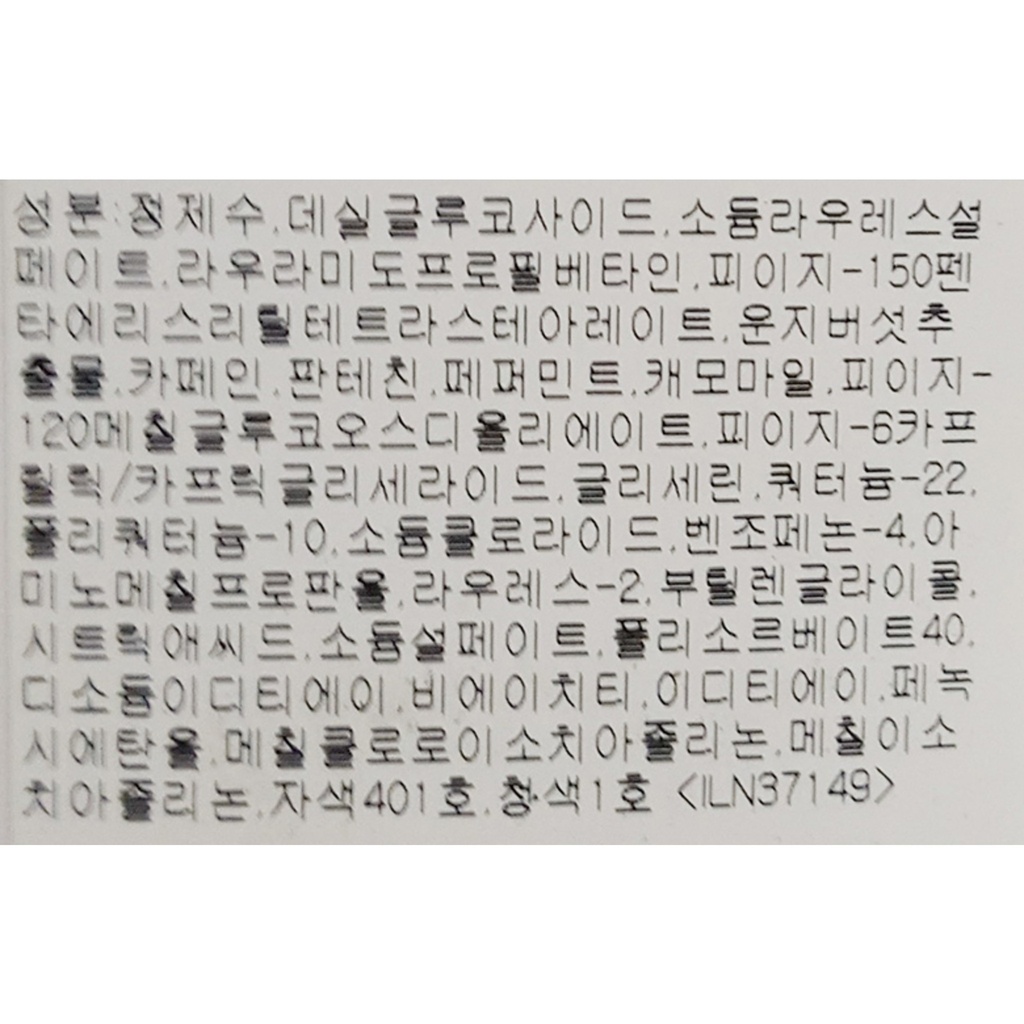 성분:정제수,데실글루코사이드,소듐라우레스설
페이트,라우라미도프로필베타인,피이지-150펜
타에리스리틸테트라스테아레이트,운지버섯추
출물,카페인,판테친,페퍼민트,캐모마일,피이지-
120메칠글루코오스디올리에이트,피이지-6카프
릴릭/카프릭글리세라이드,글리세린,쿼터늄-22,
폴리쿼터늄-10,소듐클로라이드,벤조페논-4,아
미노메칠프로판올,라우레스-2,부틸렌글라이콜,
시트릭애씨드,소듐설페이트,폴리소르베이트40,
디소듐이디티에이,비에이치티,이디티에이,페녹
시에탄올,메칠클로로이소치아졸리논,메칠이소
치아졸리논,자색401호,청색1호 <ILN37149>